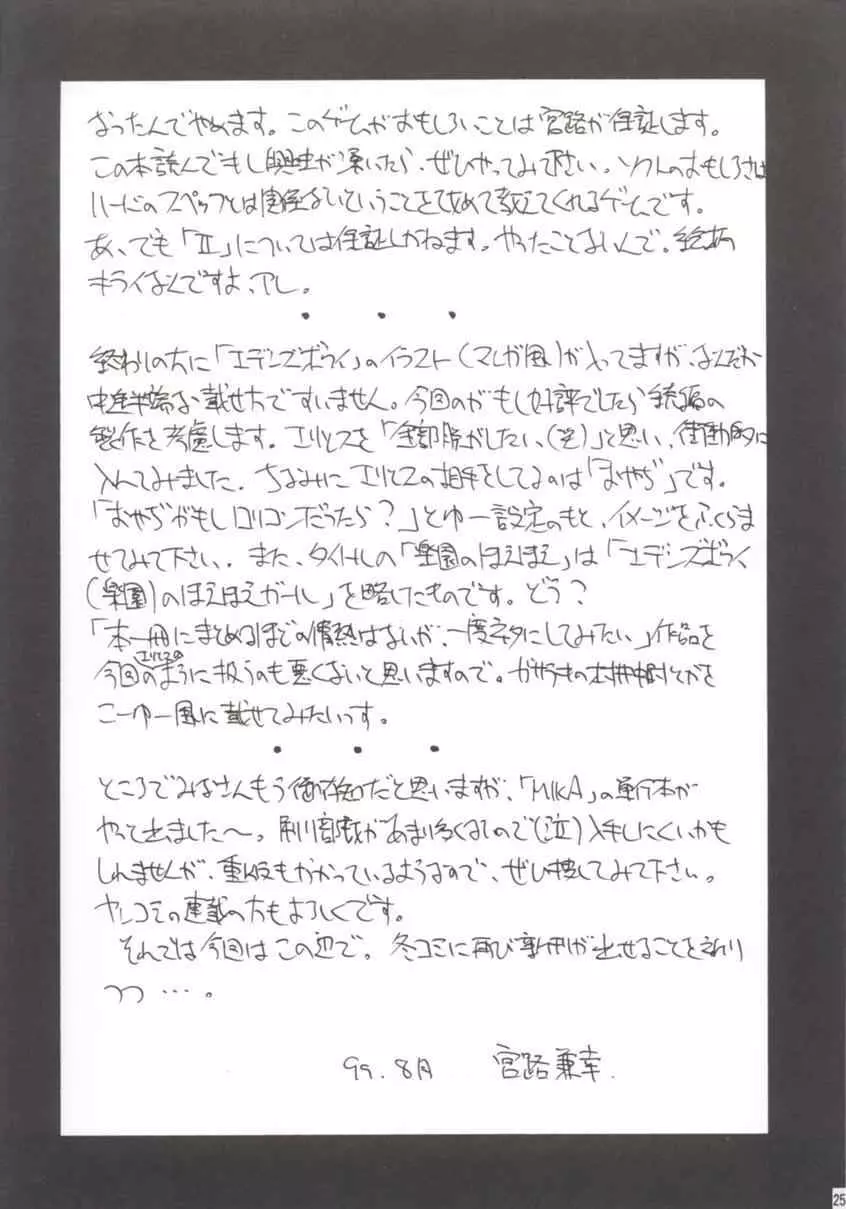 なったんでやめます。このゲームがおもしろいことは宮路が保証します。
この本読んでもし興味が湧いたら、ぜひやってみて下さい。ソフトのおもしろさは
ハードのスペックとは関係ないということを改めて教えてくれるゲームです。
あ、でも「Ⅱ」については保証しかねます。やったことないんで。絵柄
キライなんですよ、アレ。
・ ・ ・
終わりの方に「エデンズボゥイ」のイラスト(マンガ風)が入ってますが、なんだか
中途半端な載せ方ですいません。今回のがもし好評でしたら続編の
製作を考慮します。エリセスを「全部脱がしたい(笑)」と思い、衝動的に
入れてみました。ちなみにエリセスの相手をしてるのは「おやぢ」です。
「おやぢがもしロリコンだったら?」とゆー設定のもと、イメージをふくらま
せてみて下さい。また、タイトルの「楽園のほえほえ」は「エデンズボゥイ
(楽園)のほえほえガール」を略したものです。どう?
「本一冊にまとめるほどの情熱はないが、一度ネタにしてみたい」作品を
今回のエリセスのように扱うのも悪くないと思いますので。ガザラキの とかを
こーゆー風に載せてみたいっす。
・ ・ ・
ところでみなさんもう御存知だと思いますが、「MIKA」の単行本が
やっと出ました〜。刷部数があまり多くないので(泣)入手しにくいかも
しれませんが、重版もかかっているようなので、ぜひ捜してみて下さい。
ヤンコミの連載の方もよろしくです。
それでは今回はこの辺で。冬コミに再び新刊が出せることを祈り
つつ…。
99.8月 宮路兼幸.
25